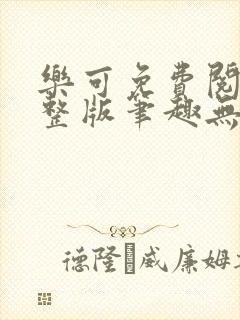 樂可免費閱
整版筆趣無
德隆·威廉姆